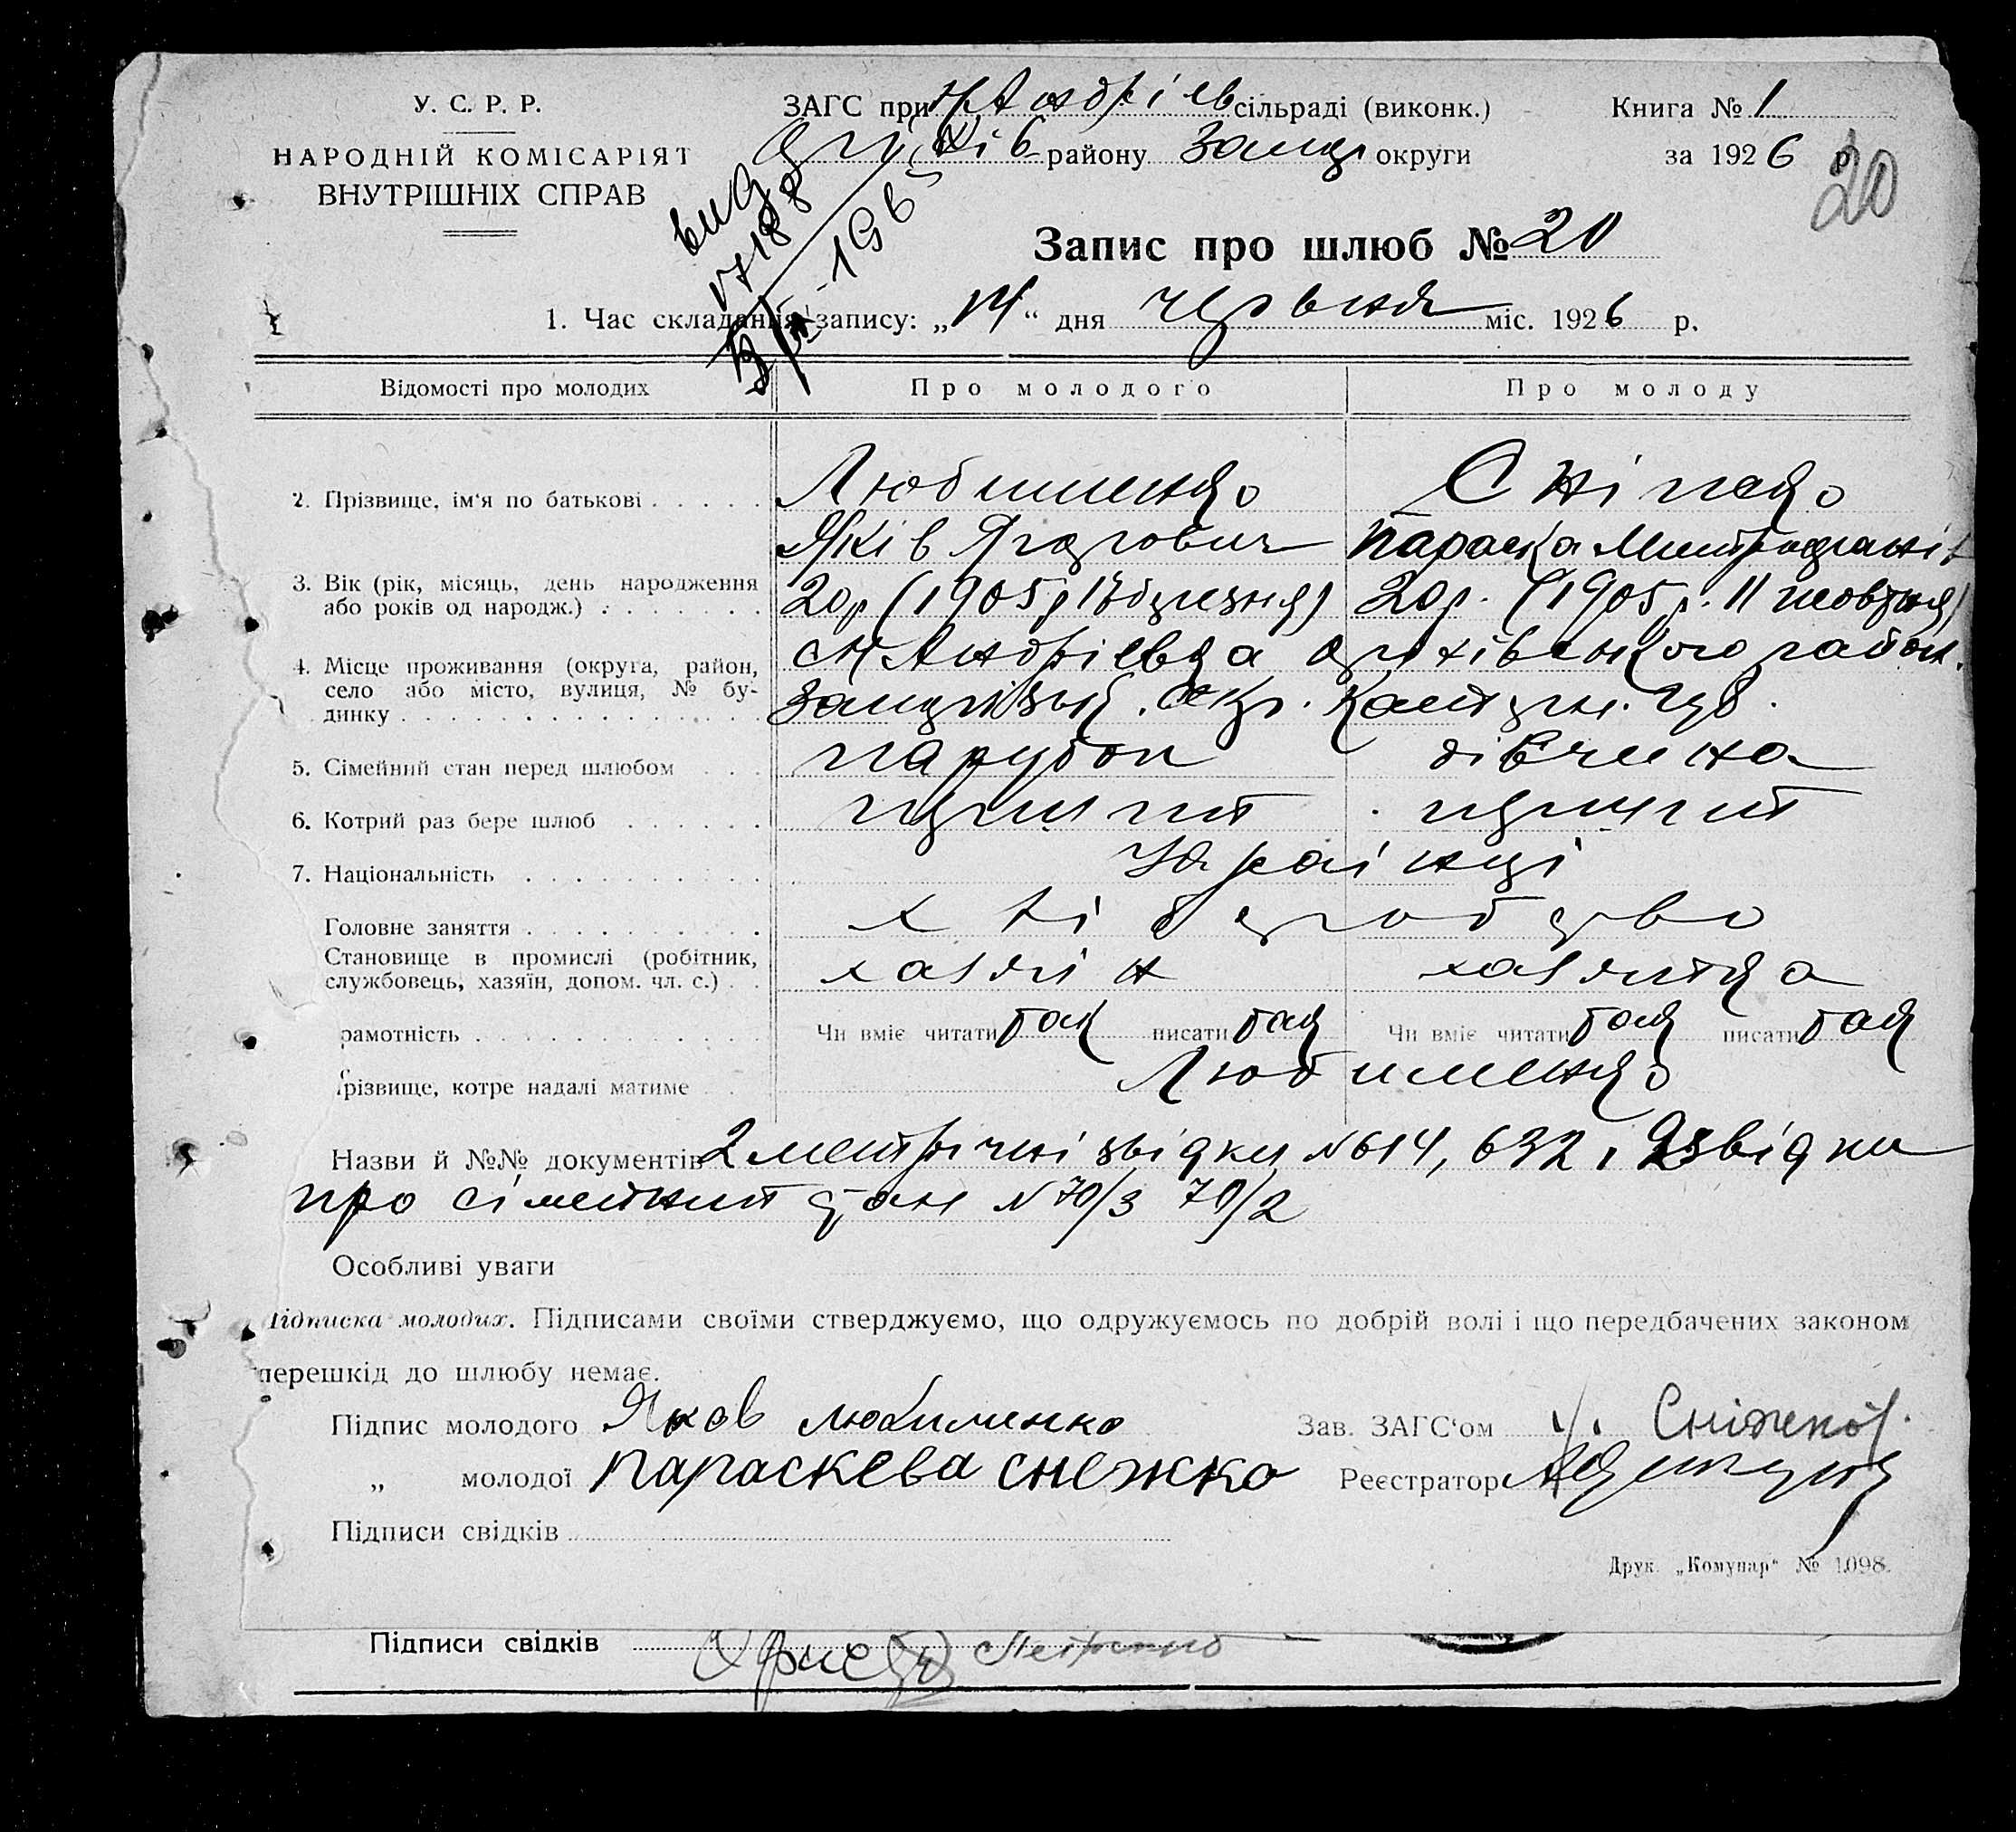 У. С. Р. Р.
НАРОДНІЙ КОМІСАРІЯТ
ВНУТРІШНІХ СПРАВ
ЗАГС при Н Андріїв сільраді (виконк.)
Оріхів району Запор округи
Книга № 1
за 1926 р.
20
Запис про шлюб № 20
1. Час складання запису: „14“ дня червня міс. 1926 р.
Відомості про молодих Про молодого Про молоду
2. Прізвище, ім'я по батькові Любименко Сніжко
Яків Ягорович Параска Митрофанів
3. Вік (рік, місяць, день народження
або років од народж.) 20р (1905р 13 березня) 20р. (1905р. 11 жовтня)
4. Місце проживання (округа, район,
село або місто, вулиця, № бу-
динку
с Н Андріевка Оріхівського район.
Запорізьк. окр. Катерин. губ.
5. Сімейний стан перед шлюбом парубок дівчина
6. Котрий раз бере шлюб перший перший
7. Національність Українці
Головне заняття хліборобство
Становище в промислі (робітник,
службовець, хазяїн, допом. чл. с.) хазяїн хазяйка
рамотність Чи вміє читати так писати так Чи вміє читати так писати так
різвище, котре надалі матиме Любименко
Назви й №№ документів 2 метричні звідки №614, 632 і 2 звідки
про сімейний стан №70/3 70/2
Особливі уваги
Підписка молодих. Підписами своїми стверджуємо, що одружуємось по добрій волі і що передбачених законом
перешкід до шлюбу немає.
Підпис молодого Яков Любименко Зав. ЗАГС'ом Сніжко
„ молодої Параскева Снежко Реєстратор
Підписи свідків
Друк. „Комунар“ № 1098.
Підписи свідків